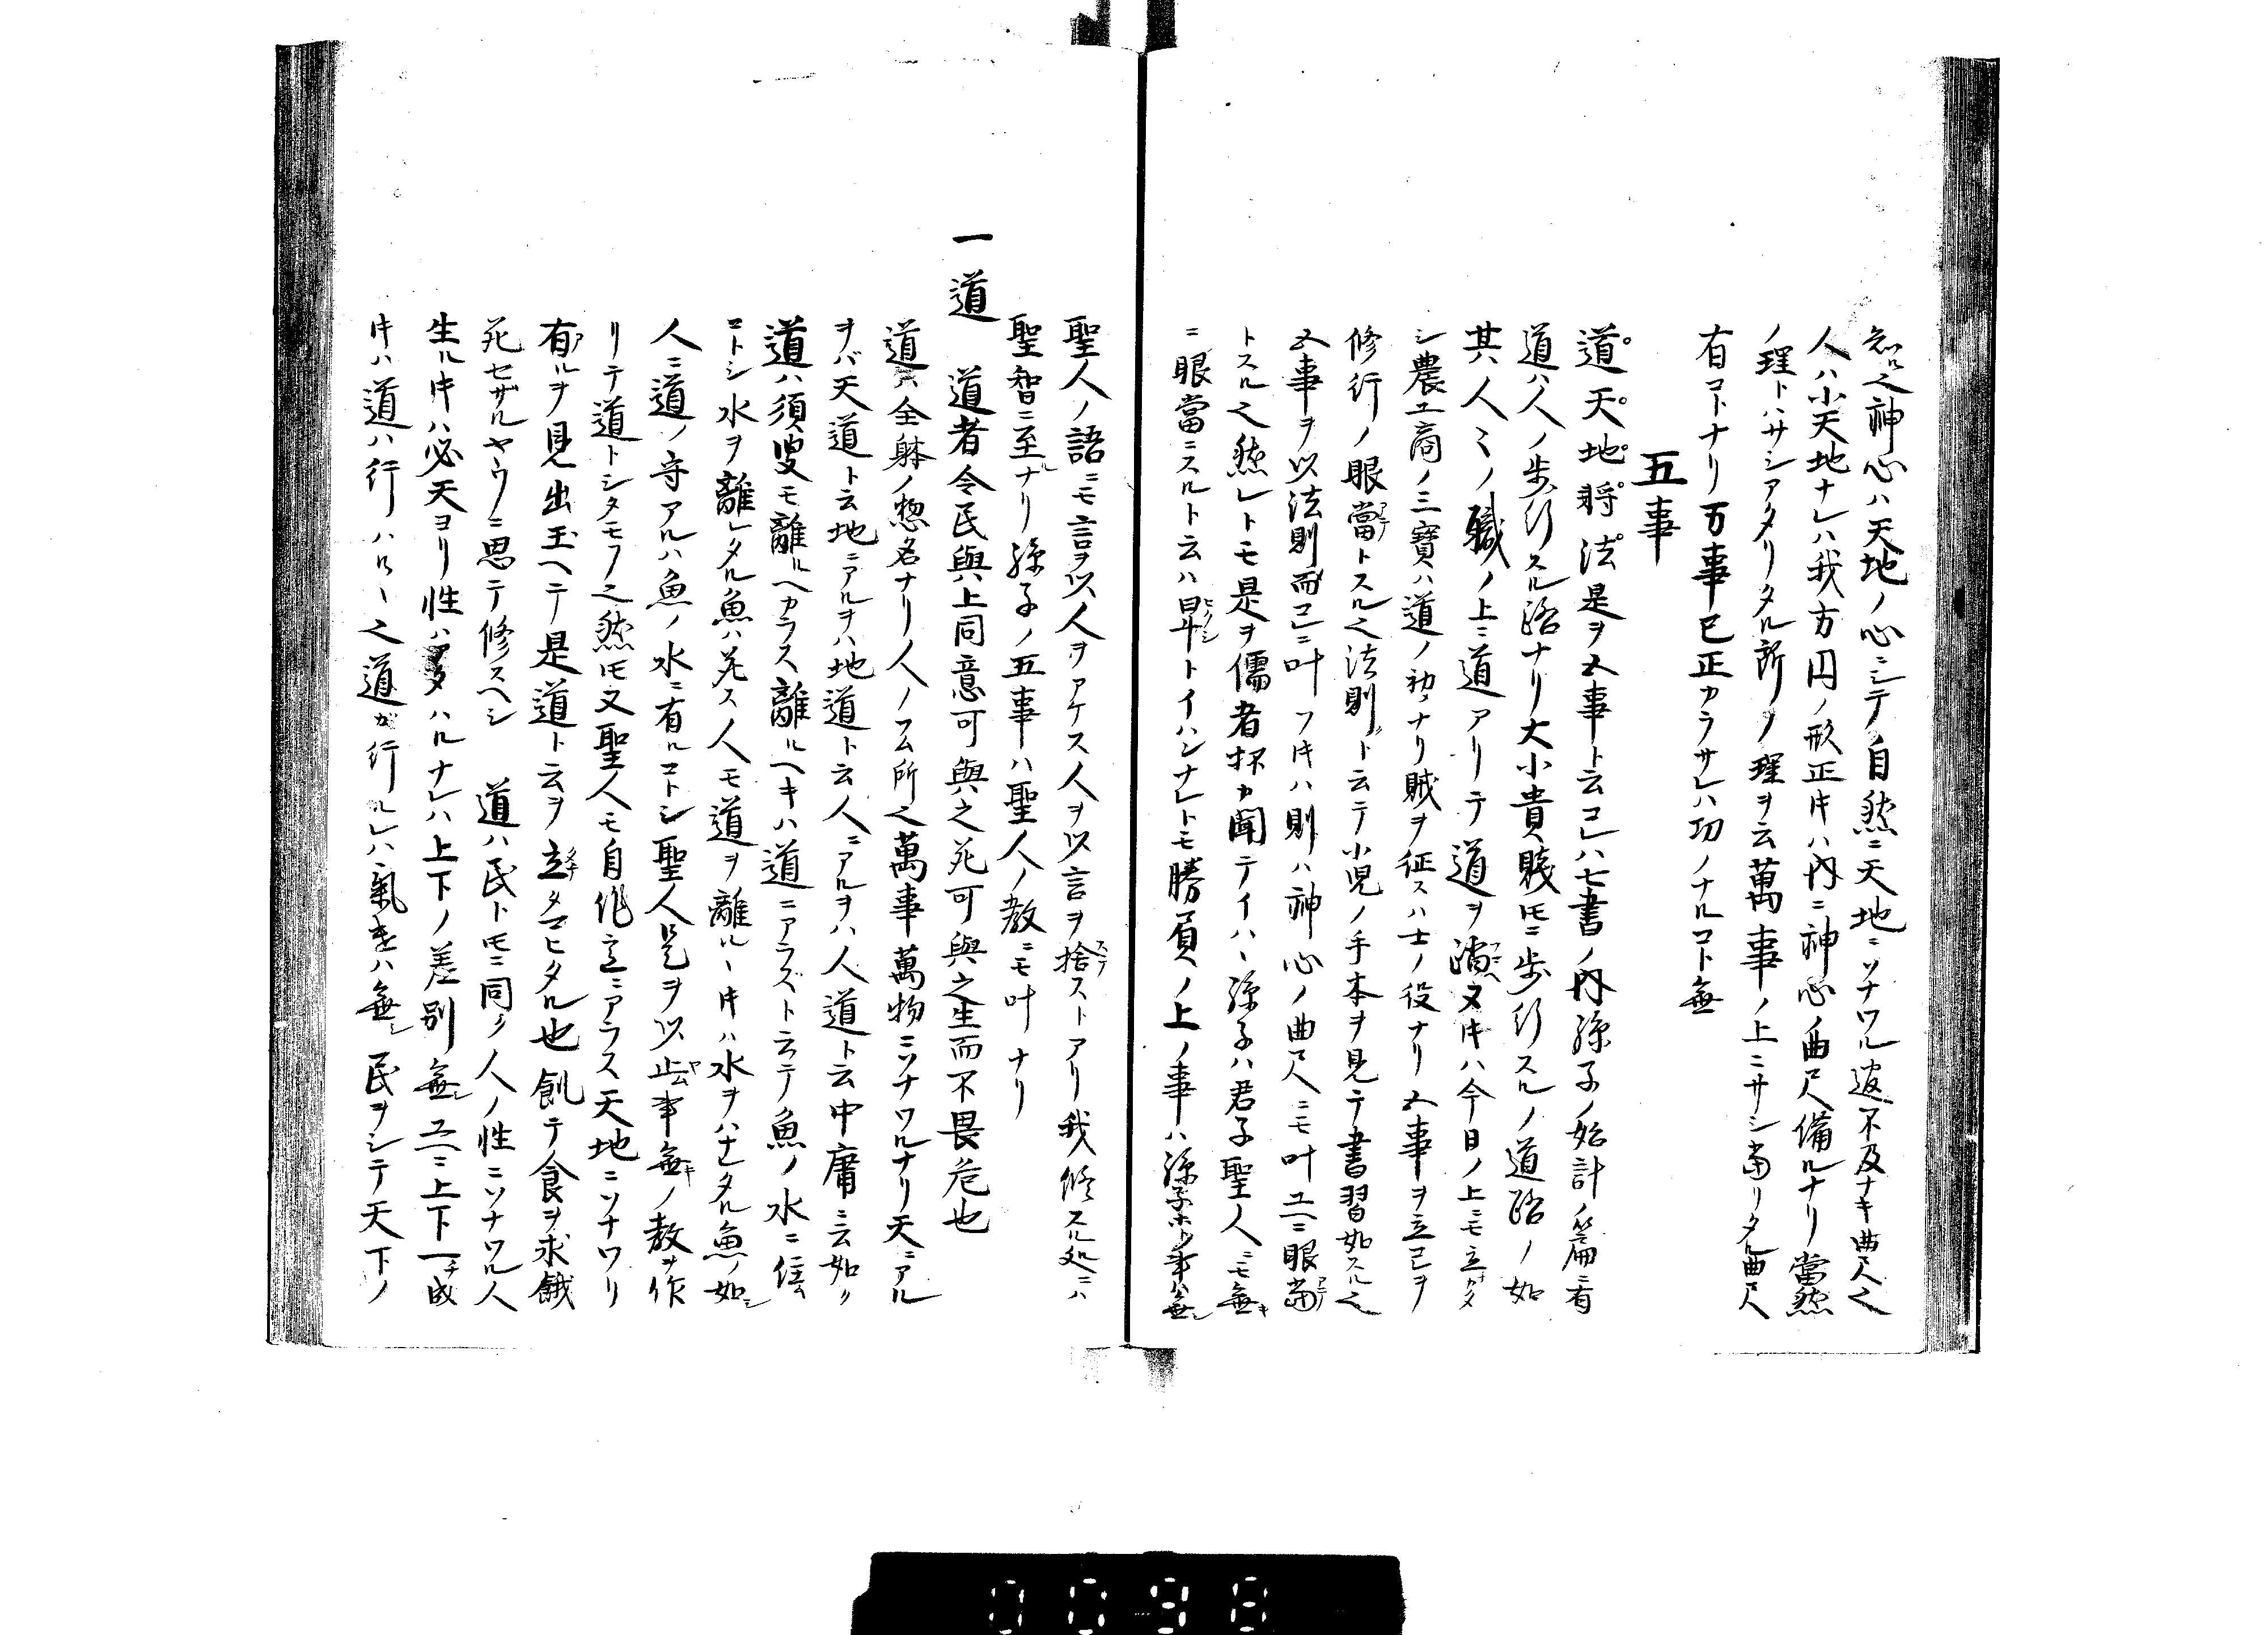 知ル之神心ハ天地ノ心ニシテ自然ニ天地ニソナワル過不及ナキ曲尺之
人ハ小天地ナレハ我方円ノ形正キハ内ニ神心ノ曲尺備ルナリ當然
ノ理トハサシアタリタル所ノ理ヲ云萬事ノ上ニサシ当リタル曲尺
有コトナリ万事已正カラサレハ功ノナルコト無
五事
道天地将法是ヲ五事ト云コレハ七書ノ内孫子ノ始計ノ篇ニ有
道ハ人ノ歩行スル路ナリ大小貴賤トモニ歩行スルノ道路ノ如
其ハ人ミノ職ノ上ニ道アリテ道ヲ踏又キハ今日ノ上ニモ立カタ
シ農工商ノ三寶ハ道ノ初ナリ賊ヲ征スハ士ノ役ナリ五事ヲ立己ヲ
修行ノ眼當トスル之法則ト云テ小児ノ手本ヲ見テ書習如スル之
五事ヲ以法則而己ニ叶フキハ則ハ神心ノ曲尺ニモ叶ユヘニ眼當
トスル之然レトモ是ヲ儒者杯カ聞テイハヽ孫子ハ君子聖人ニモ無
ニ眼當ニスルト云ハ日斗トイハンナレトモ勝負ノ上ノ事ハ孫子ホトノ事ハ無シ
聖人ノ語ニモ言ヲ以人ヲアケス人ヲ以言ヲ捨ストアリ我修スル処ニハ
聖智ニ至ナリ孫子ノ五事ハ聖人ノ教ニモ叶ナリ
一道 道者令民與上同意可與之死可與之生而不畏危也
道ハ全躰ノ惣名ナリ人ノフム所之萬事萬物ニソナワルナリ天ニアル
ヲバ天道ト云地ニアルヲハ地道ト云人ニアルヲハ人道ト云中庸ニ云如ク
道ハ須臾モ離ルヘカラス離ルヘキハ道ニアラズト云テ魚ノ水ニ住
コトシ水ヲ離レタル魚ハ死ス人モ道ヲ離ルヽキハ水ヲハナレタル魚ノ如シ
人ニ道ノ守アルハ魚ノ水ニ有ルコトシ聖人是ヲ以止事無ノ教ヲ作
リテ道トシタモフ之然トモ又聖人モ自作立ニアラス天地ニソナワリ
有ルヲ見出玉ヘテ是道ト云ヲ立タマヒタル也飢テノ食ヲ求餓
死セザルヤウニ思テ修スヘシ 道ハ民トモニ同ク人ノ性ニソナワル人
生ルキハ必天ヨリ性ハタマハルナレハ上下ノ差別無シユヘニ上下一チ成
キハ道ハ行ハルヽ之道ガ行ルレハ氣キハ無シ民ヲシテ天下ノ